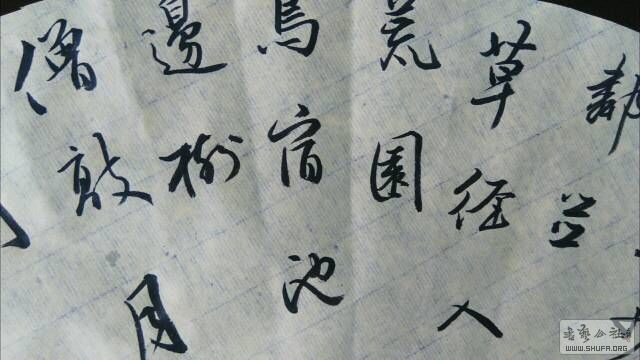 並
草徑入
荒園
鳥宿池
邊樹
僧敲月
書藝公社
WWW.SHUFA.ORG